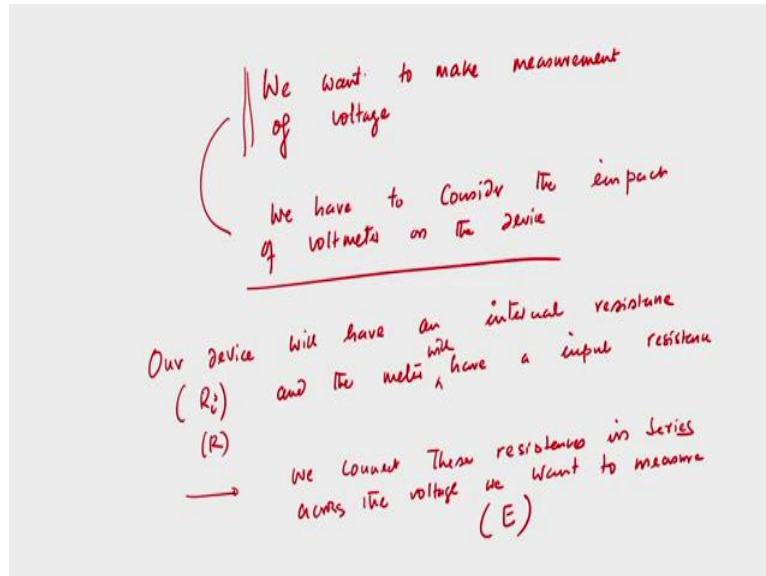 We want to make measurement
of voltage
We have to Consider the impact
of voltmeter on the device
Our device will have an internal resistance
(Ri) and the meter will have a input resistance
(R)
→ We Connect These resistences in Series
across the voltage we want to measure
(E)